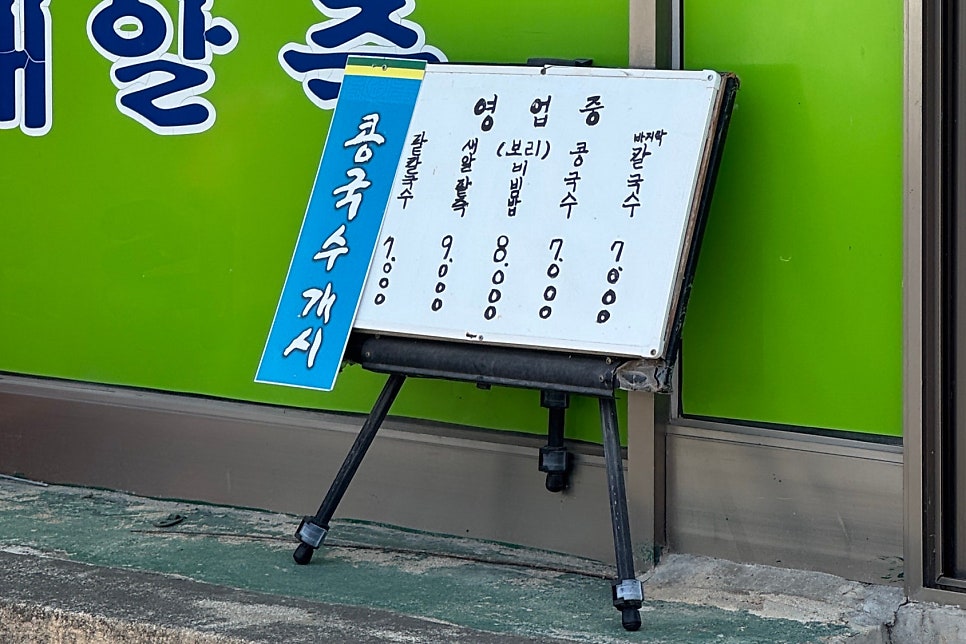 알
콩국수개시
영업중
팥칼국수 7.000
새알팥죽 9.000
(보리)비빔밥 8.000
콩국수 7.000
바지락칼국수 7.000